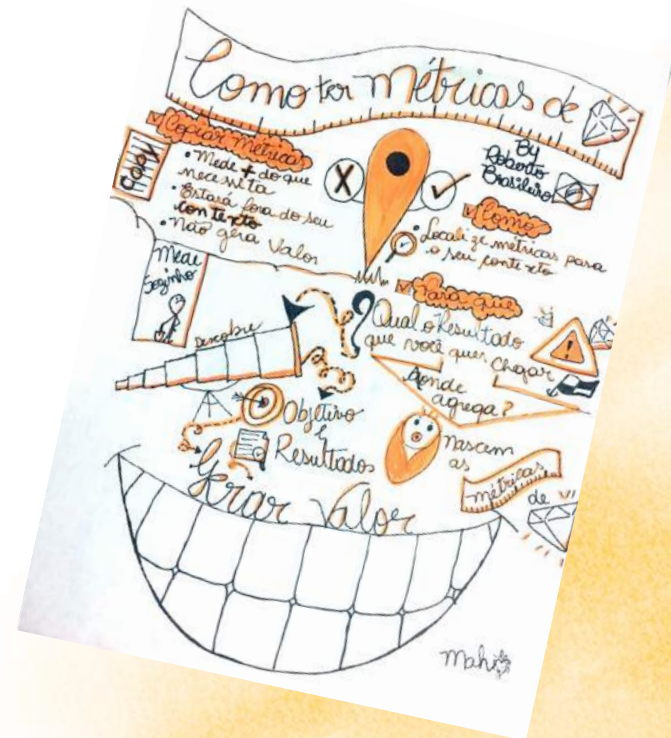 Como ter métricas de
By
Roberto
Brasileiro
Copiar métricas
COPY
• Mede + do que
necessita
• Estará fora do seu
contexto
• Não gera Valor
X
Como
• Localize métricas para
o seu contexto
Mede
Sozinho
Para que
?
Qual o Resultado
que você quer chegar
Aonde
agrega?
Descobre
Objetivo
e
Resultados
nascem
as
métricas
de
Gerar Valor
Mah